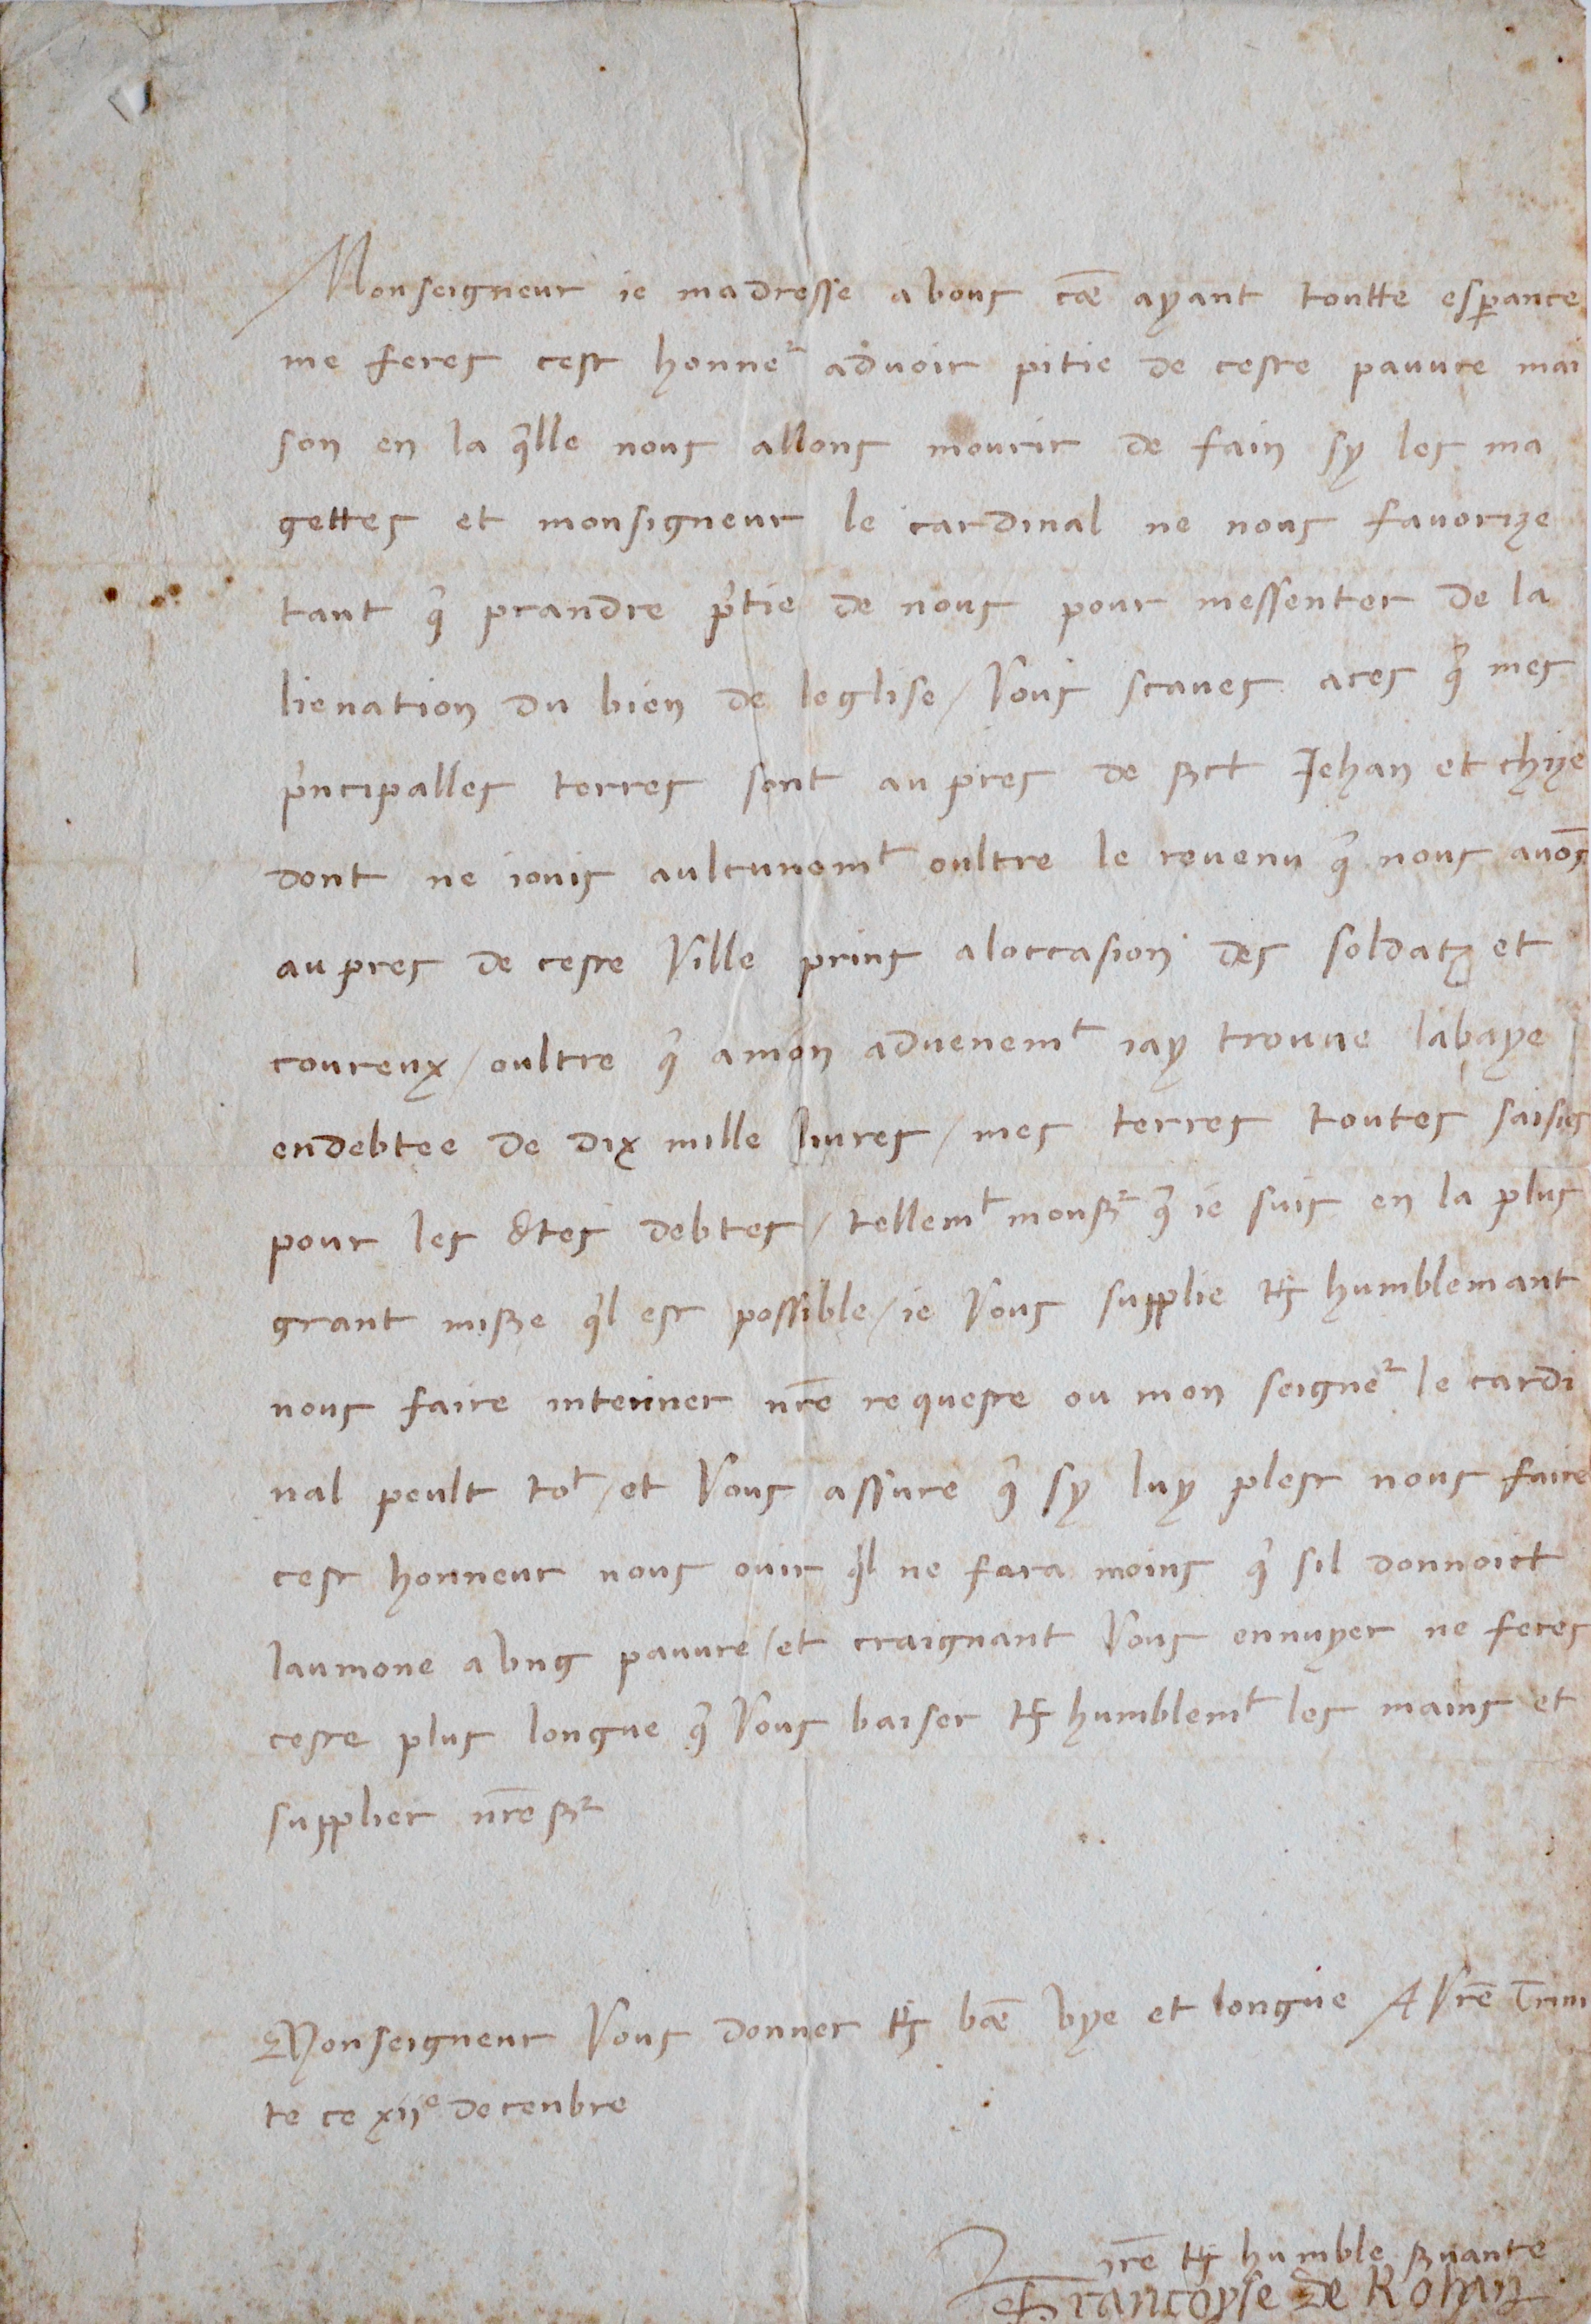 Monseigneur ie madresse a vous cõe ayant toutte esp̱ance
me feres cest honneʳ advoir pitie de ceste pauvre mai
son en la q̃lle nous allons mourir de fain sy les ma
gettes et monsigneur le cardinal ne nous favorize
tant q̃ prandre p̱tie de nous pour messenter de la
lienation du bien de leglise / Vous scaves aces q̃ mes
pͥncipalles terres sont au pres de sct Jehan et chize
dont ne iouis aulcunemᵗ oultre le revenu q̃ nous avõs
au pres de ceste Ville prins aloccasion des soldatz et
coureux / oultre q̃ a mon advenemᵗ iay trouve labaye
endebtee de dix mille livres / mes terres toutes saisies
pour les dtes debtes / tellemᵗ monsʳ q̃ ie suis en la plus
grant misẽe q̃l est possible / ie Vous supplie tꝭ humblemant
nous faire interiner nr̃e requeste ou mon seigneʳ le cardi
nal peult toᵗ / et Vous assure q̃ sy luy plest nous faire
cest honneur nous ouir q̃l ne fara moins q̃ sil donnoict
laumone a vng pauvre / et craignant Vous ennuyer ne feres
ceste plus longue q̃ Vous baiser tꝭ humblemᵗ les mains et
supplier nr̃e sʳ
Monseigneur Vous donner tꝭ bõe vye et longue A Vr̃e Trini
te ce xiiᵉ decenbre
Vr̃e tꝭ humble s̃vante
Françoyse de Rohan